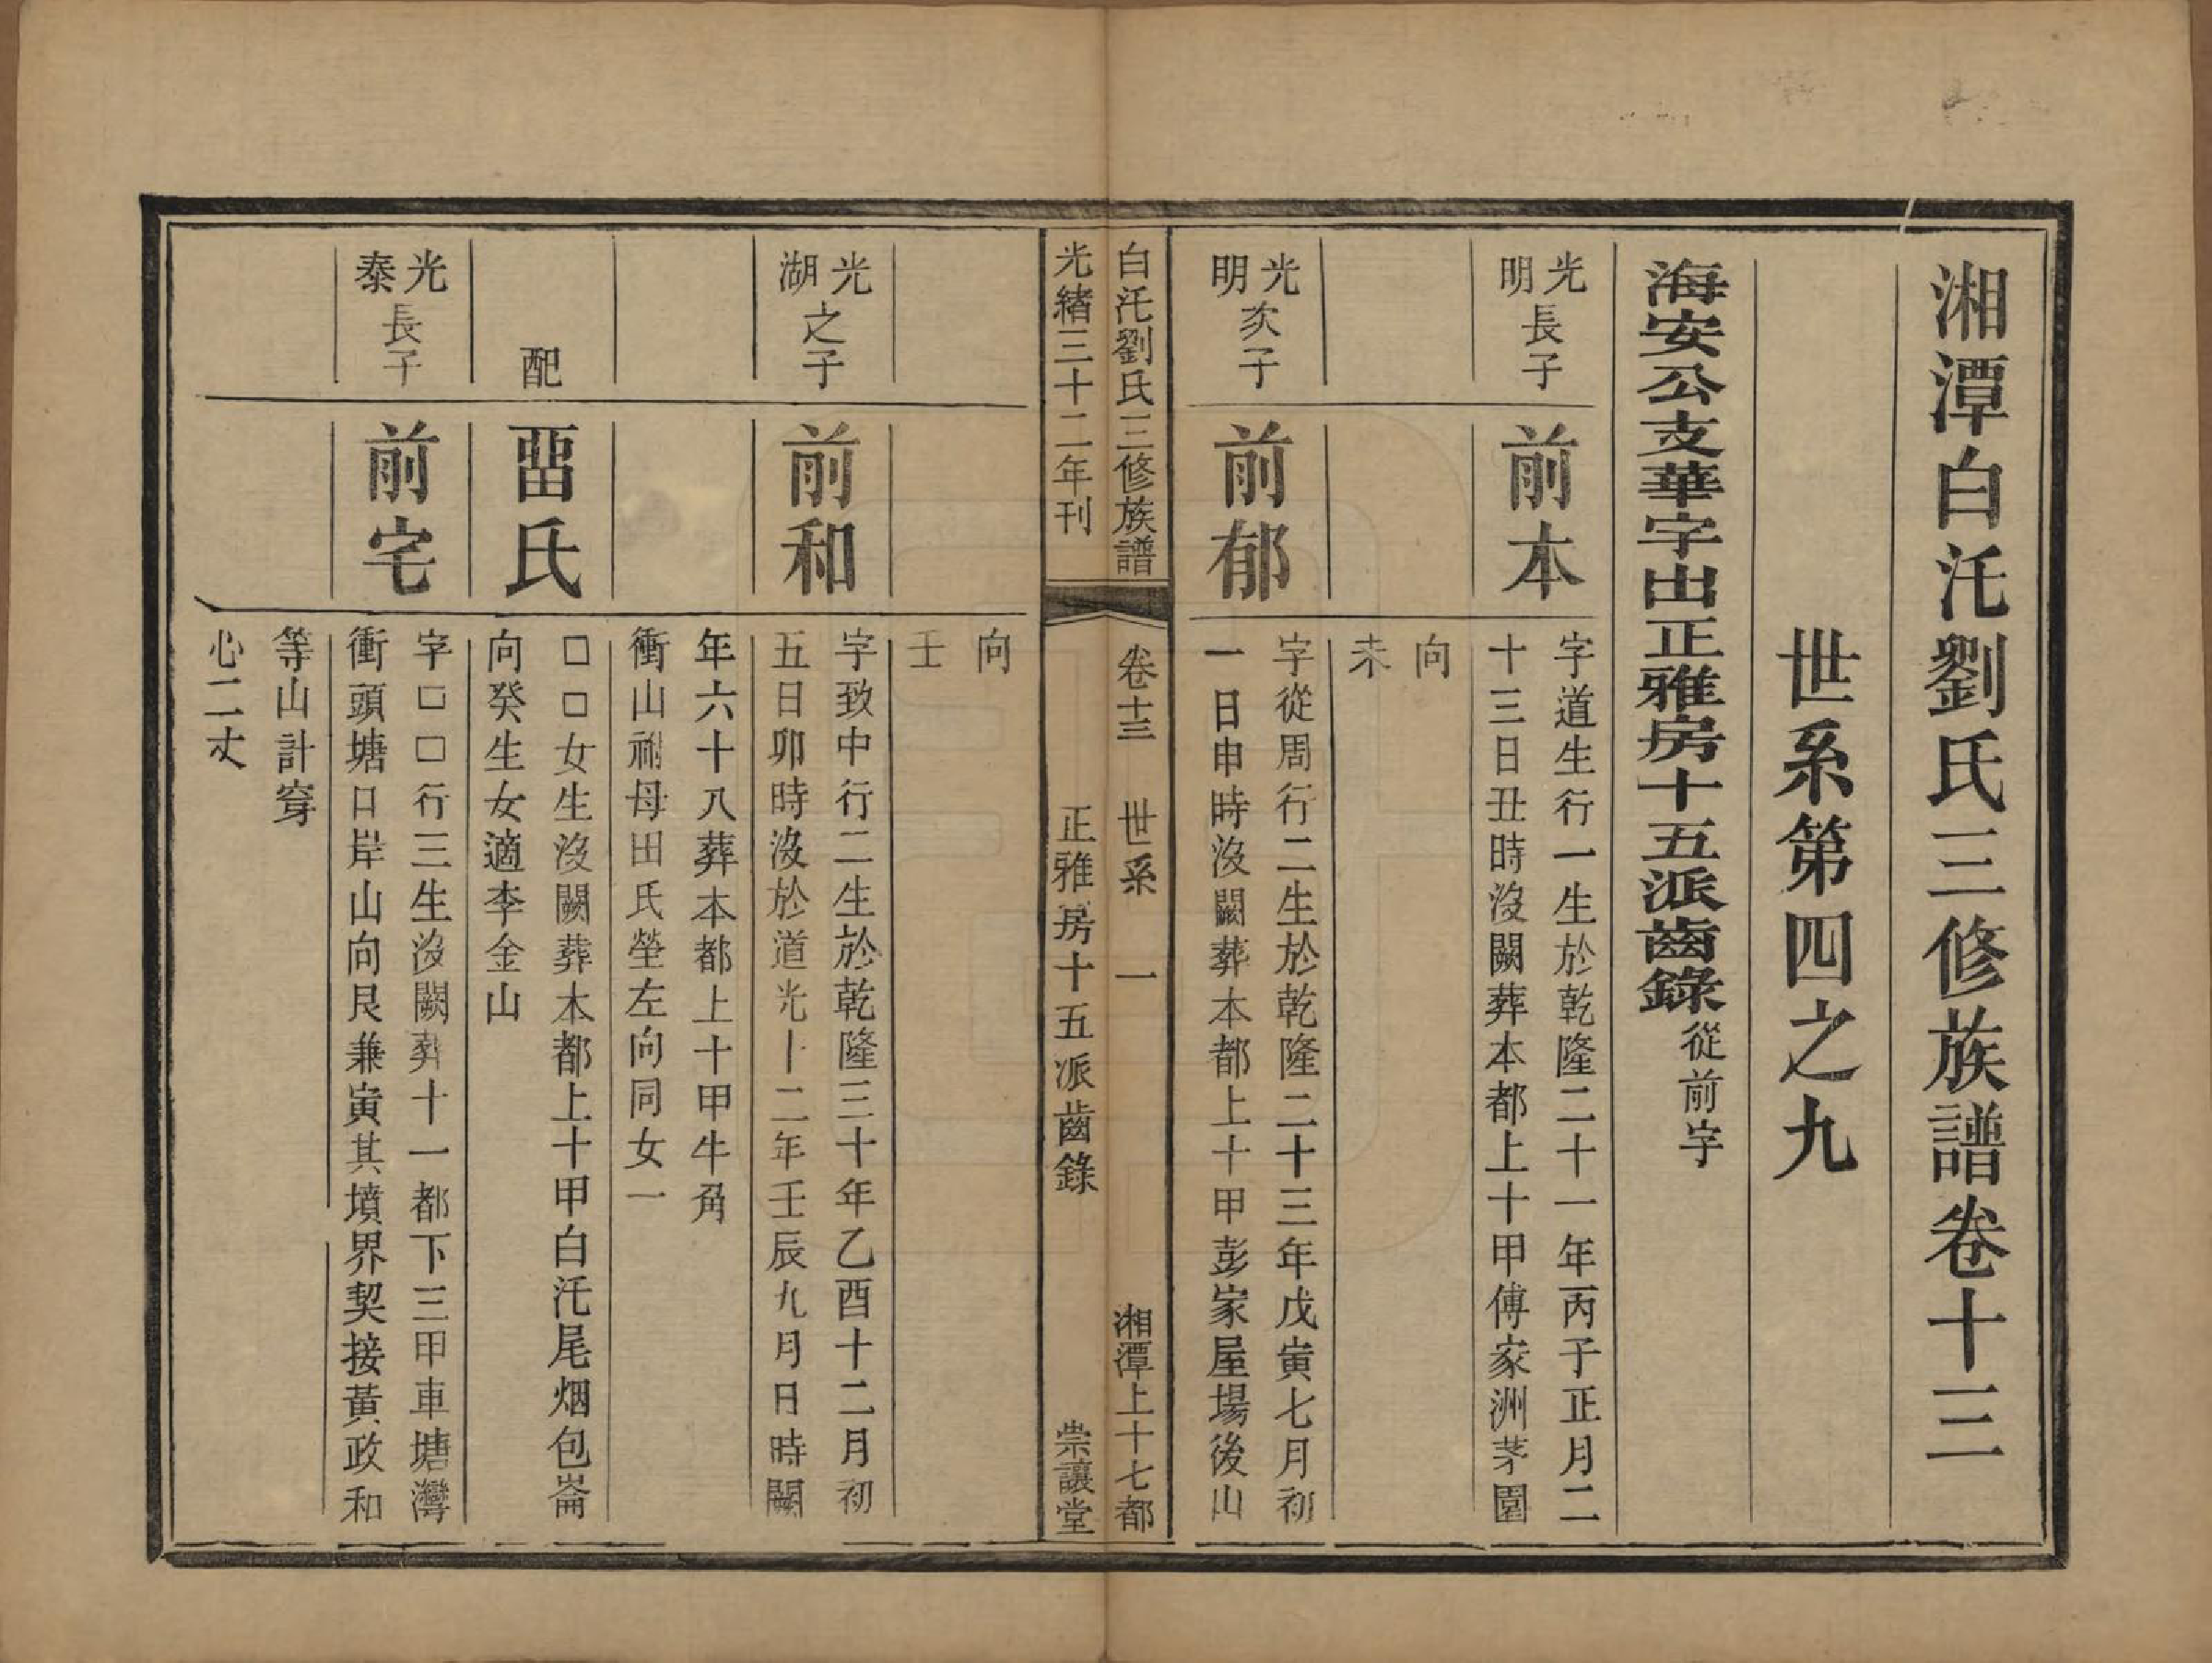 湘潭白汑劉氏三修族譜卷十三
世系第四之九
海安公支華字出正雅房十五派齒錄從前字
光明長子
前本
字道生行一生於乾隆二十一年丙子正月二
十三日丑時沒闕葬本都上十甲傅家洲茅園
向
未
光明次子
前郁
字從周行二生於乾隆二十三年戊寅七月初
一日申時沒闕葬本都上十甲彭家屋場後山
白汑劉氏三修族譜
卷十三 世系 一
湘潭上十七都
光緒三十二年刊
正雅房十五派齒錄
崇讓堂
向
壬
光湖之子
前和
字致中行二生於乾隆三十年乙酉十二月初
五日卯時沒於道光十二年壬辰九月日時闕
年六十八葬本都上十甲牛角
衝山祔母田氏塋左向同女一
配
畱氏
□□女生沒闕葬本都上十甲白汑尾烟包崙
向癸生女適李金山
光泰長子
前宅
字□□行三生沒闕葬十一都下三甲車塘灣
衝頭塘口岸山向艮兼寅其墳界契接黃政和
等山計穿
心二丈